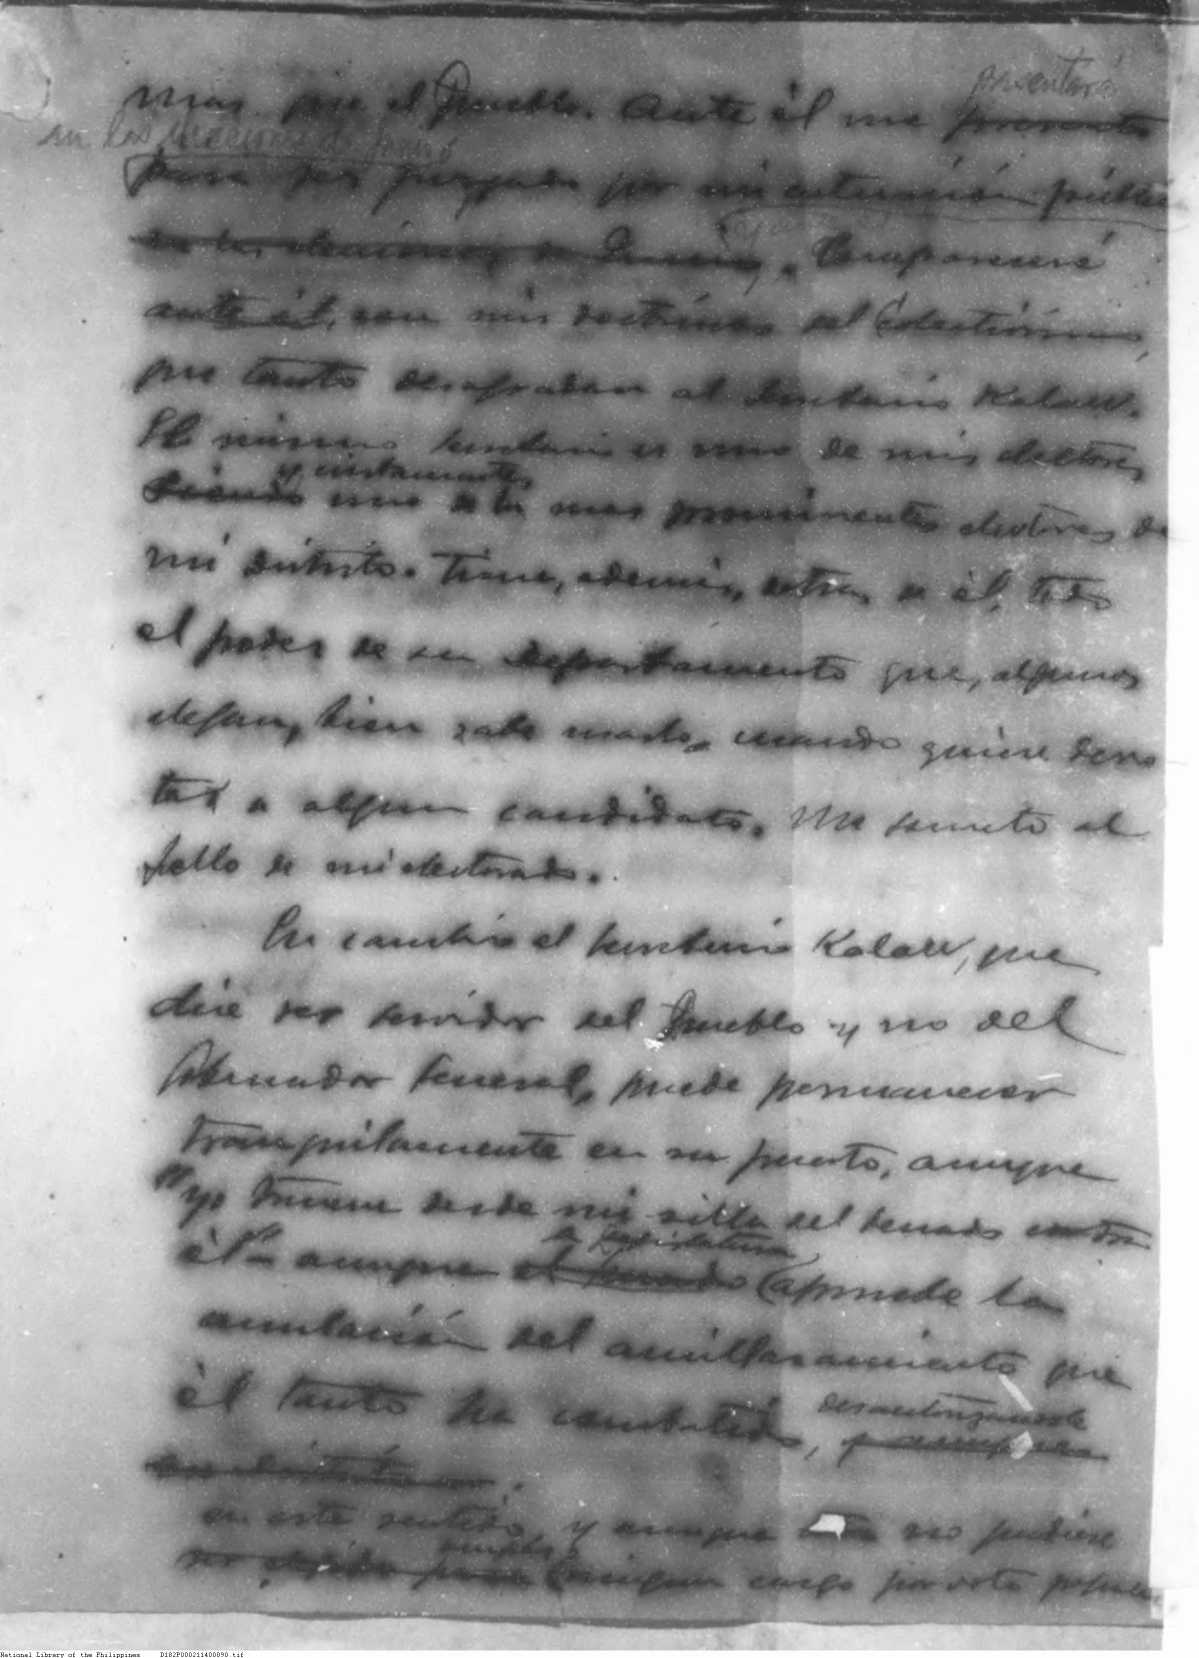 presentaré
mas que el Pueblo. Ante él me presento
en las elecciones de junio
para ser juzgado por mi actuación pública
en las elecciones de Junio. Compareceré
ante él, con mis doctrinas del Colectivismo,
que tanto desagradan al Secretario Kalaw.
El mismo Secretario es uno de mis electores
y ciertamente
siendo uno de los mas prominentes electores de
mi distrito. Tiene, además, detras de él, todo
el poder de su Departamento que, algunos
alegan, bien sabe usarlo, cuando quiere derro
tar a algun candidato. Me someto al
fallo de mi electorado.
En cambio el Secretario Kalaw, que
dice ser servidor del Pueblo y no del
Gobernador General, puede permanecer
tranquilamente en su puesto, aunque
"yo truene desde mi silla del Senado contra
él" – aunque el Senado apruebe la
la Legislatura
anulación del amillaramiento que
él tanto ha combatido,
desautorizandole
en este sentido, y aunque no pudiese
no elegido para ningun cargo por voto popular